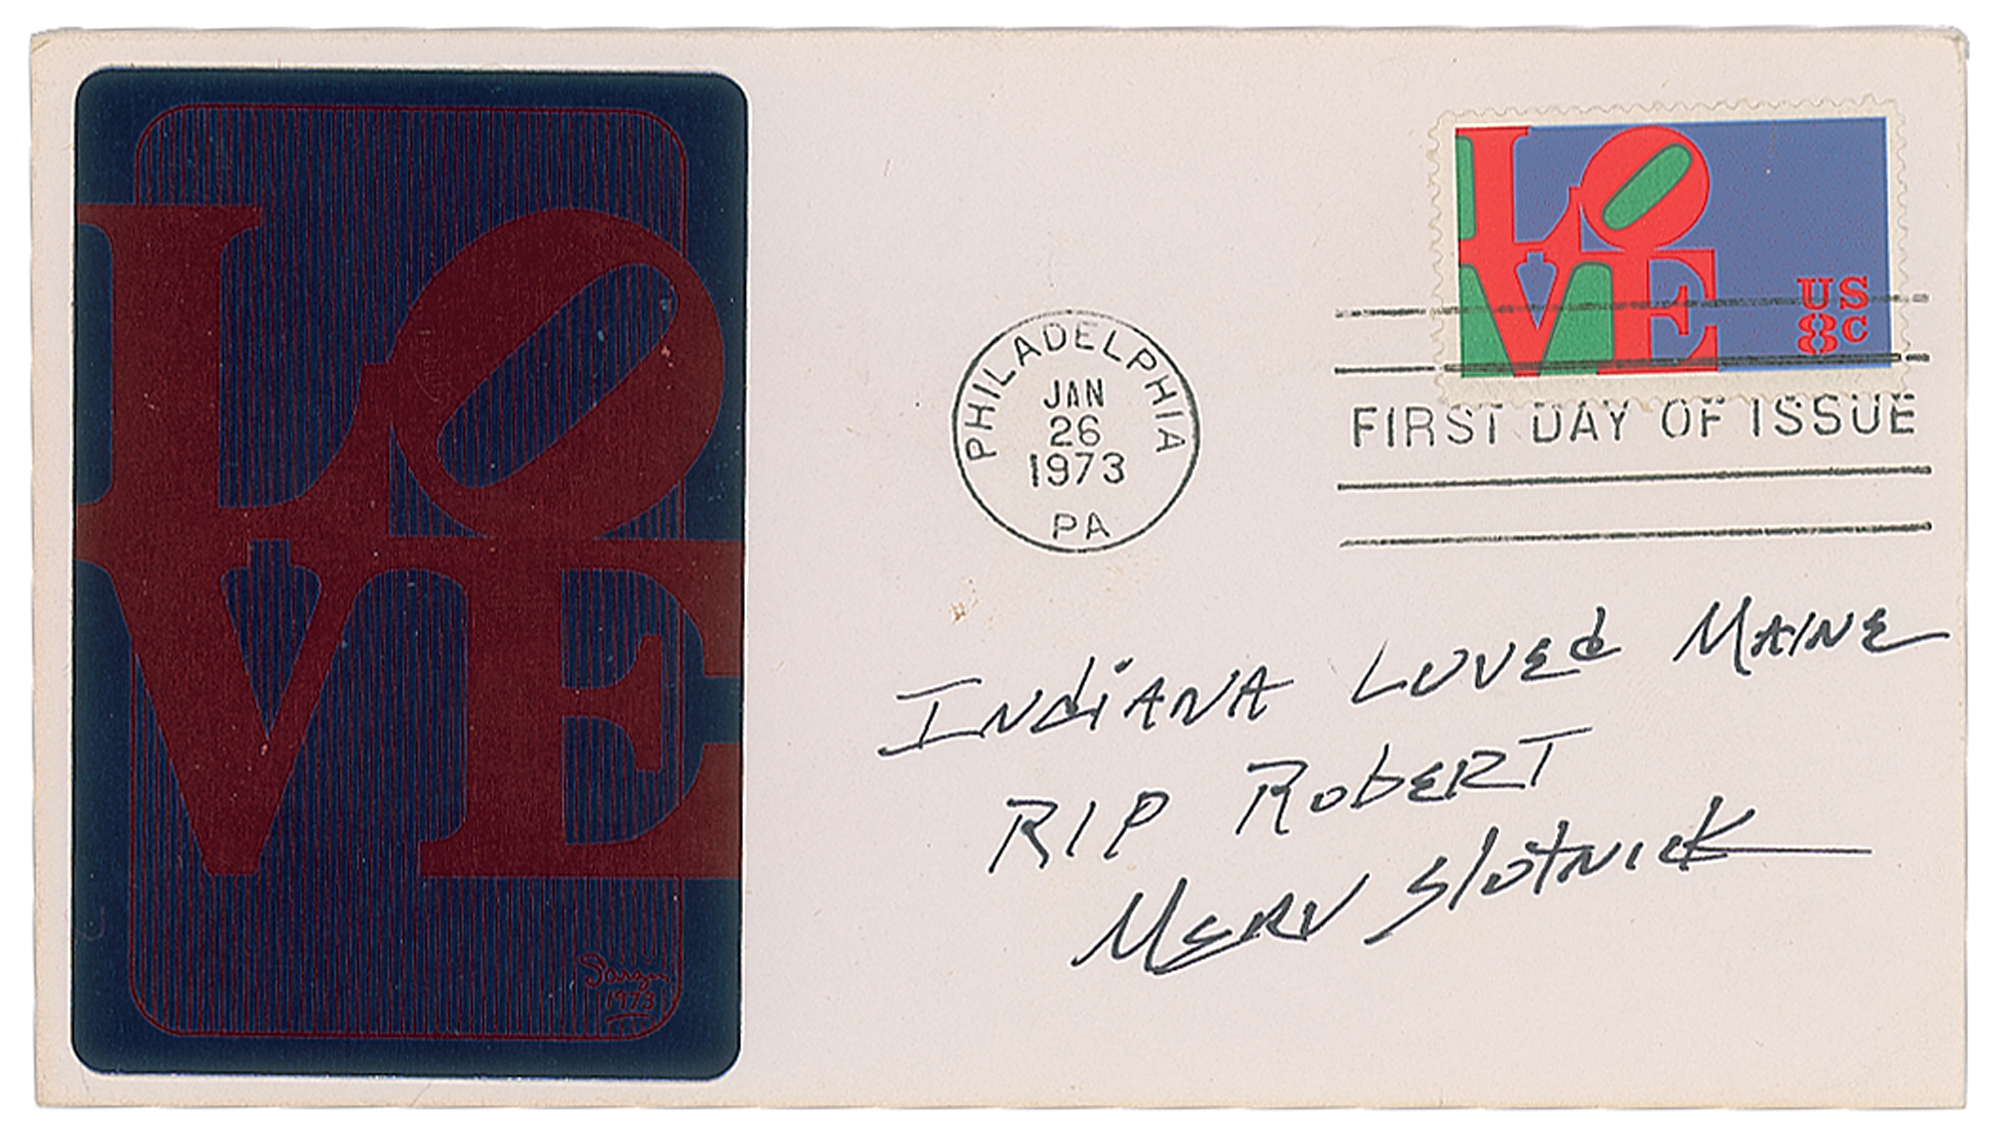 LO
VE
Sarzin
1973
LO
VE
US
8c
PHILADELPHIA
JAN
26
1973
PA
FIRST DAY OF ISSUE
INdiANA LOVEd MAINE
RIP RobERT
MERV SlOTNICK